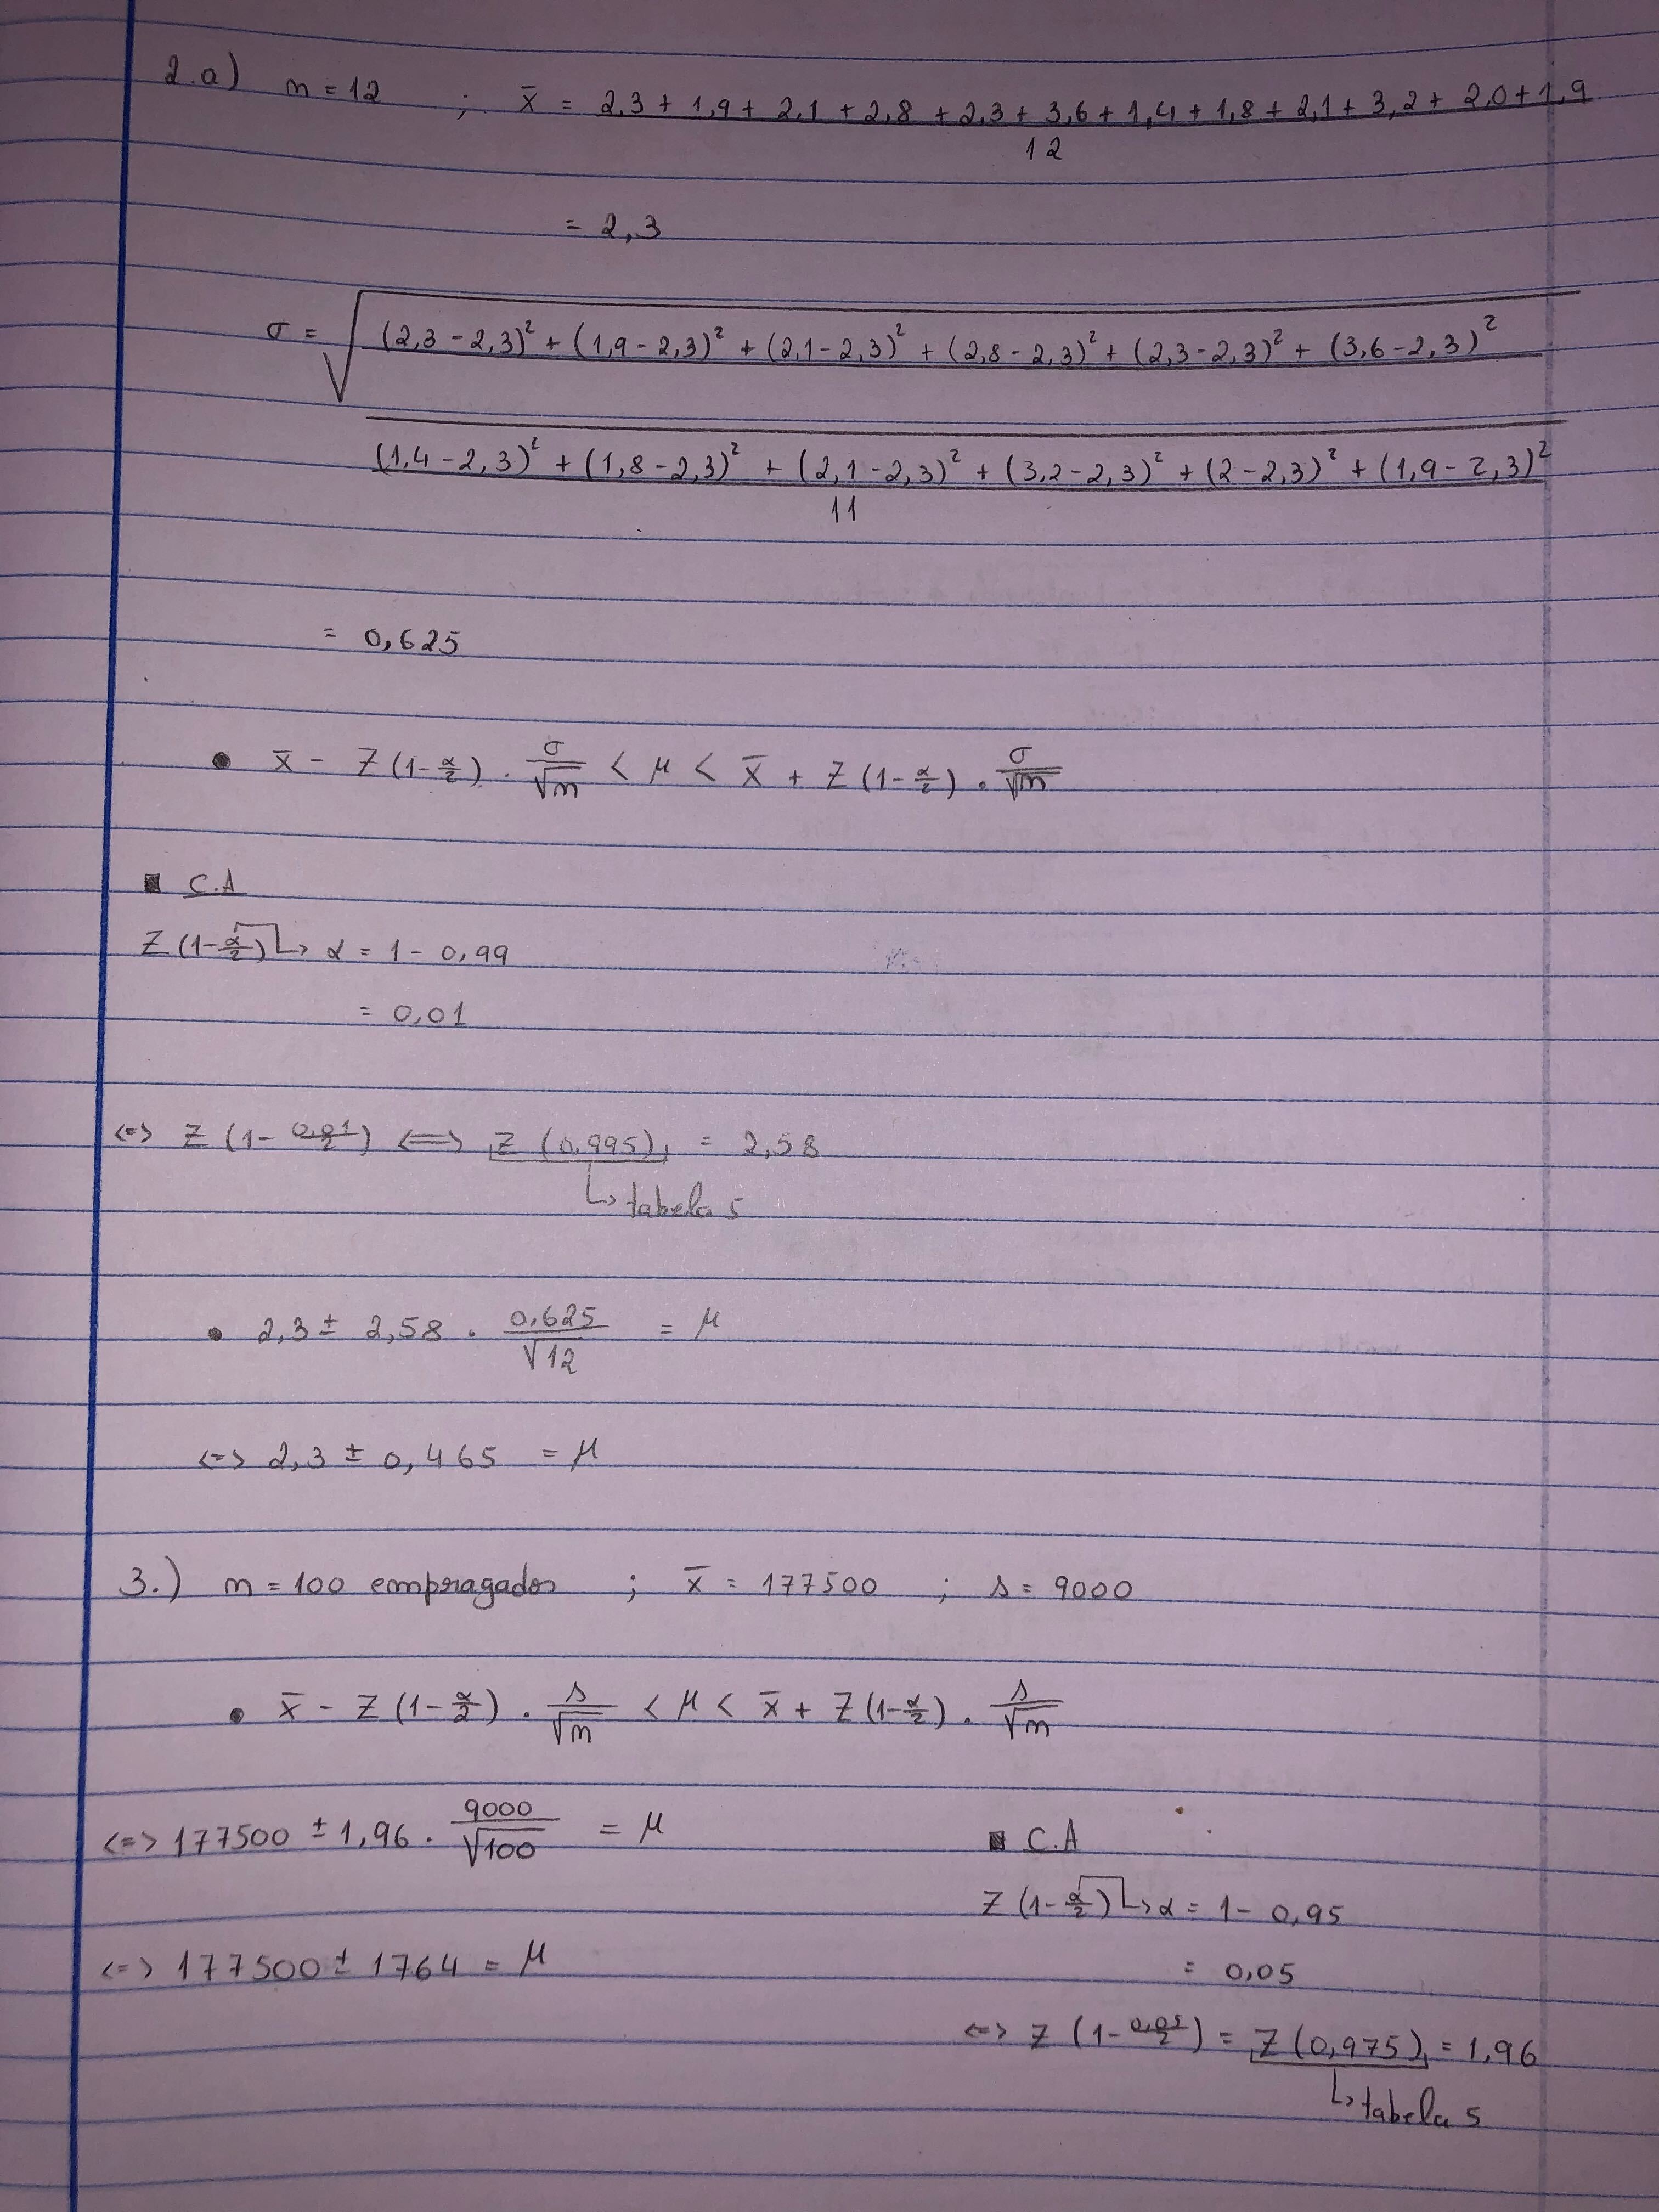 2.a) n = 12 ; x̄ = 2,3 + 1,9 + 2,1 + 2,8 + 2,3 + 3,6 + 1,4 + 1,8 + 2,1 + 3,2 + 2,0 + 1,9
12
= 2,3
σ = √ (2,3 - 2,3)² + (1,9 - 2,3)² + (2,1 - 2,3)² + (2,8 - 2,3)² + (2,3 - 2,3)² + (3,6 - 2,3)²
(1,4 - 2,3)² + (1,8 - 2,3)² + (2,1 - 2,3)² + (3,2 - 2,3)² + (2 - 2,3)² + (1,9 - 2,3)²
11
= 0,625
• x̄ - Z(1-α/2) · σ/√n < μ < x̄ + Z(1-α/2) · σ/√n
▪ C.A
Z(1-α/2) ↳ α = 1 - 0,99
= 0,01
<=> Z(1- 0,01/2) <=> Z(0,995) = 2,58
↳ tabela 5
• 2,3 ± 2,58 · 0,625/√12 = μ
<=> 2,3 ± 0,465 = μ
3.) n = 100 empragados ; x̄ = 177500 ; s = 9000
• x̄ - Z(1-α/2) · s/√n < μ < x̄ + Z(1-α/2) · s/√n
<=> 177500 ± 1,96 · 9000/√100 = μ
<=> 177500 ± 1764 = μ
▪ C.A
Z(1-α/2) ↳ α = 1 - 0,95
= 0,05
<=> Z(1- 0,05/2) = Z(0,975) = 1,96
↳ tabela 5